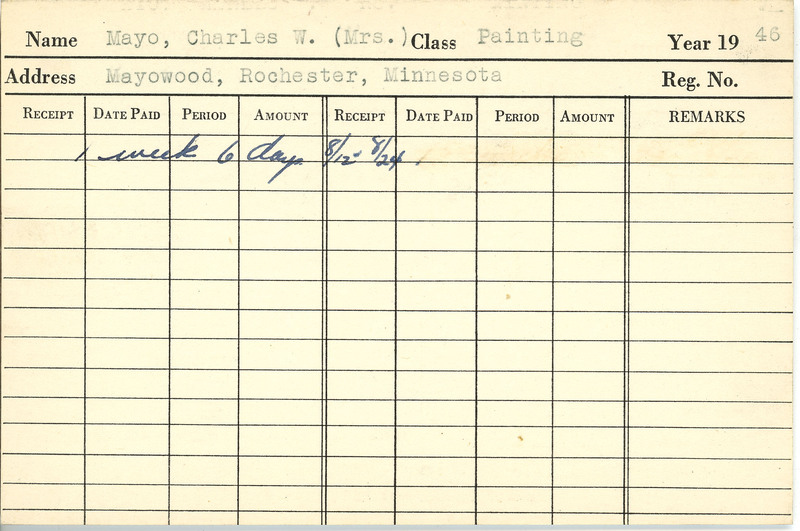 Name Mayo, Charles W. (Mrs.) Class Painting Year 19 46
Address Mayowood, Rochester, Minnesota Reg. No.
RECEIPT DATE PAID PERIOD AMOUNT RECEIPT DATE PAID PERIOD AMOUNT REMARKS
1 week 6 days 8/12 - 8/24